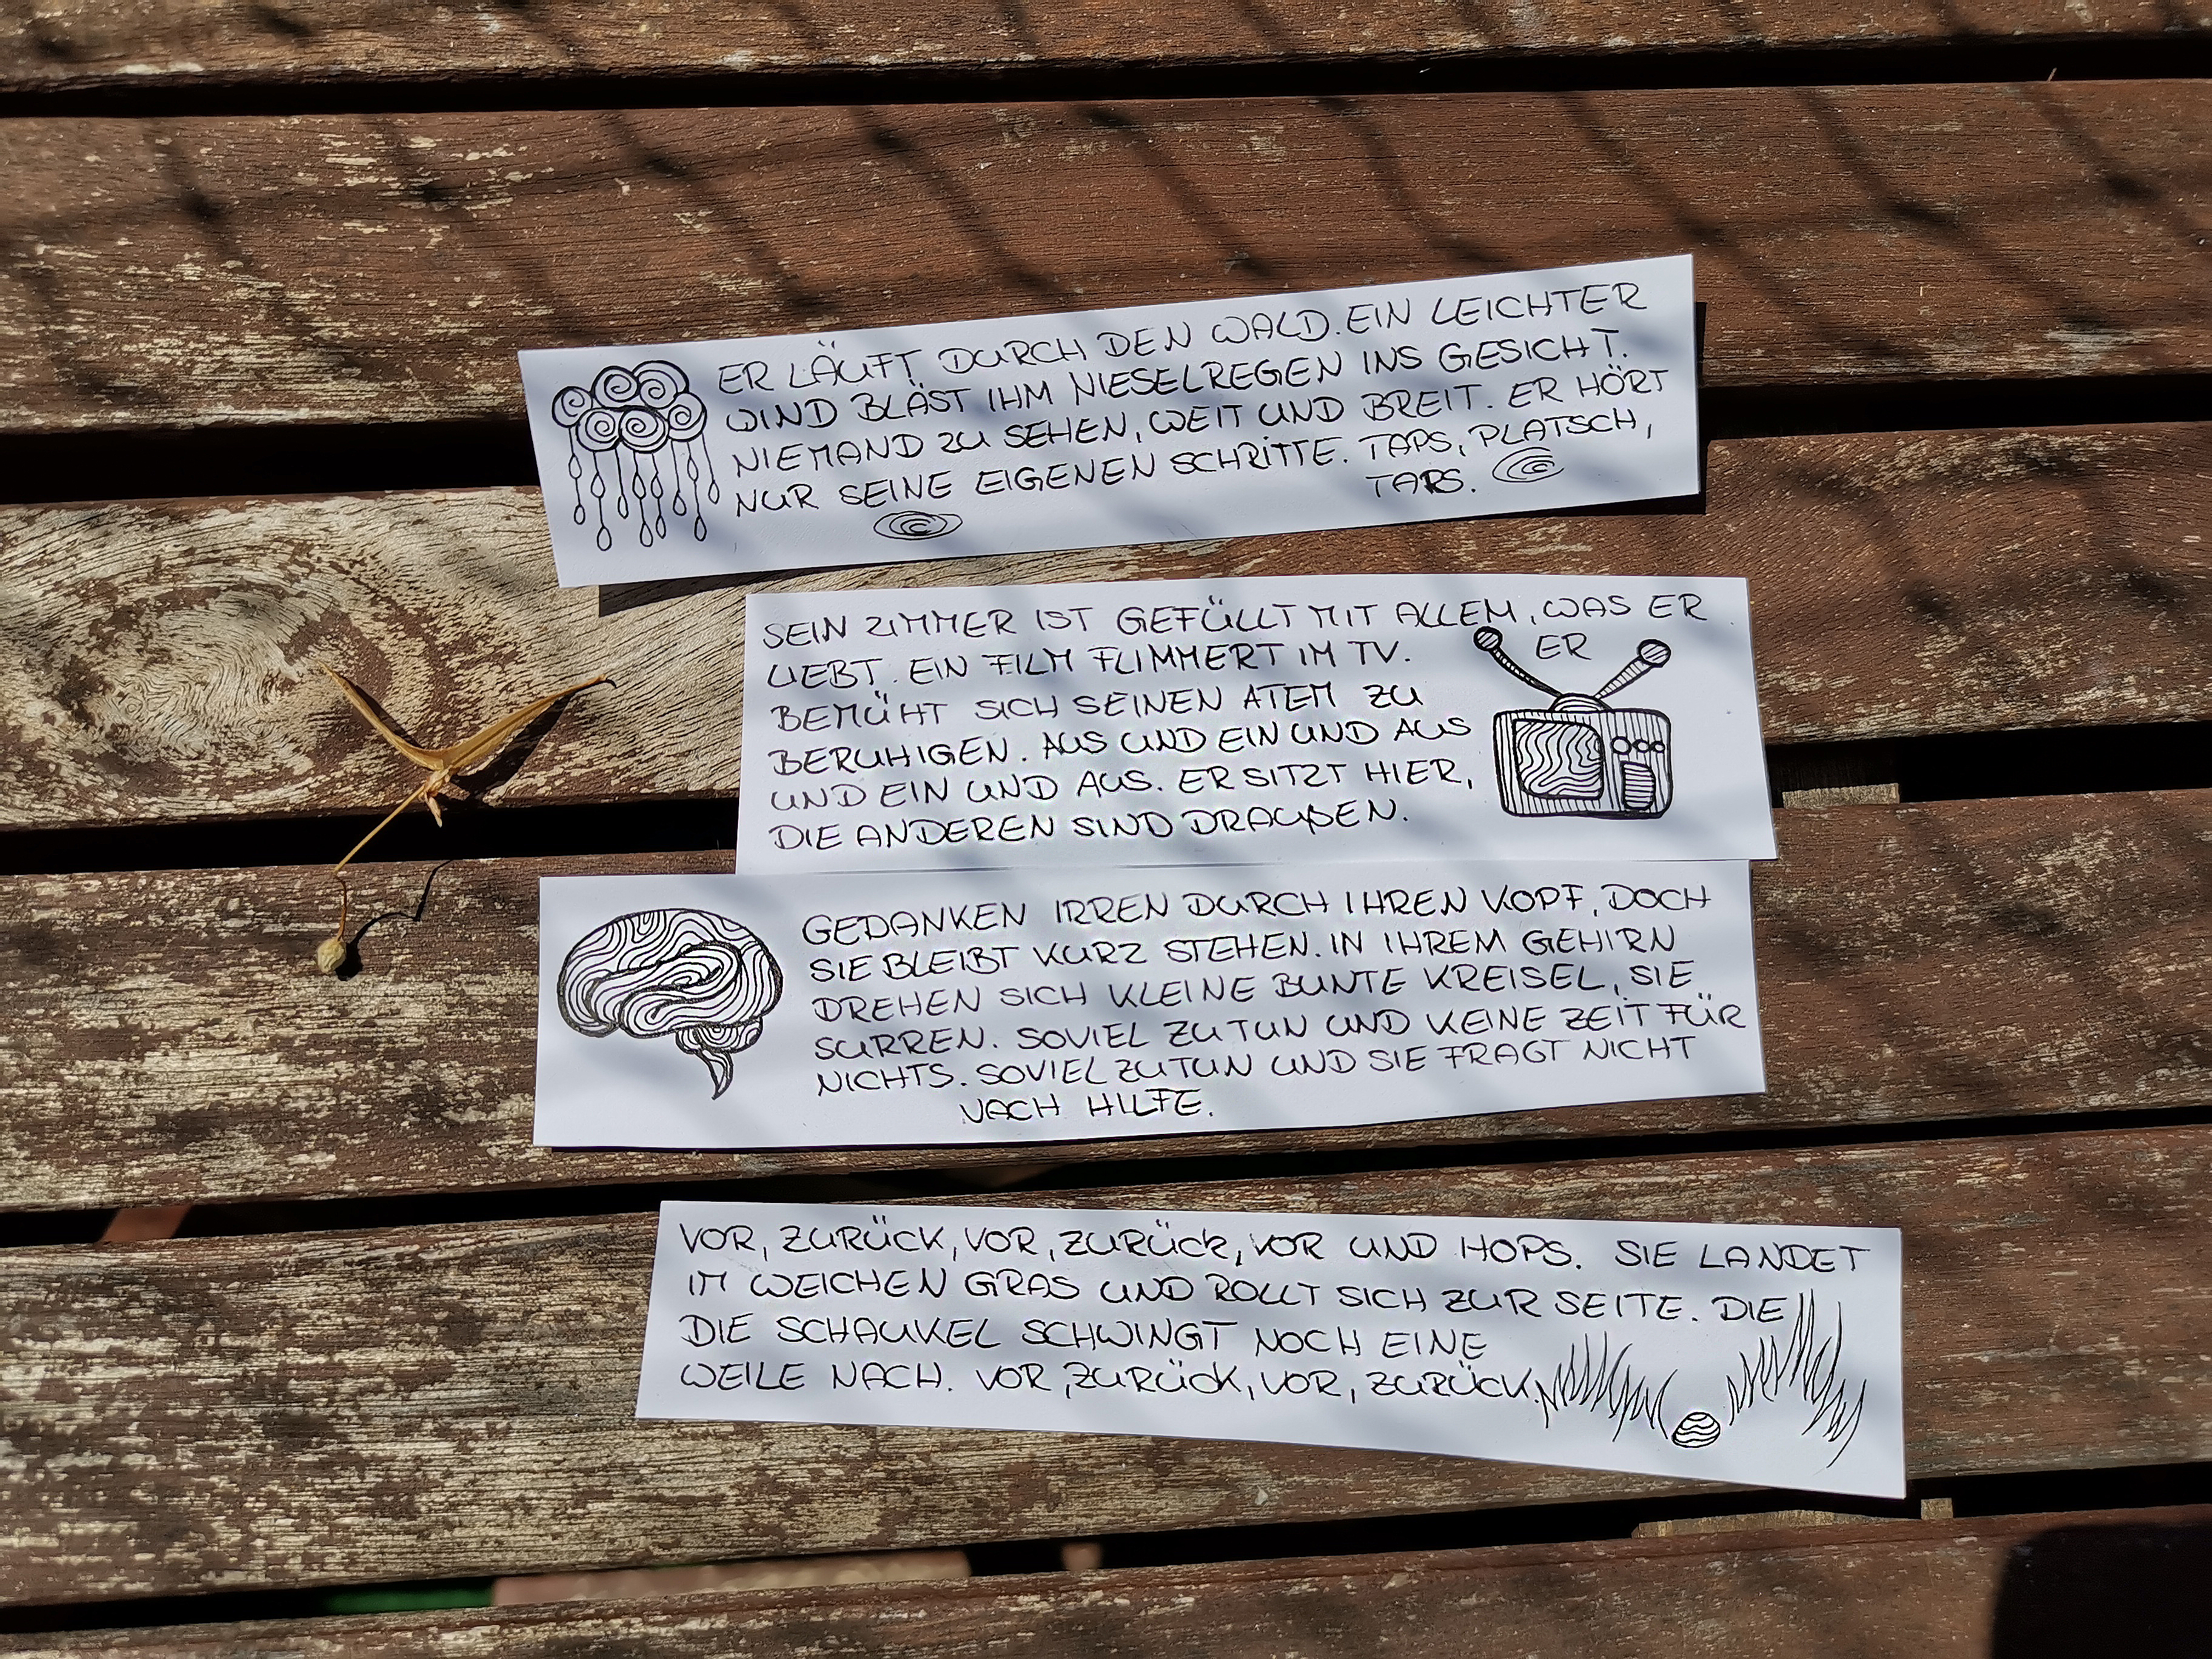 ER LÄUFT DURCH DEN WALD. EIN LEICHTER
WIND BLÄST IHM NIESELREGEN INS GESICHT.
NIEMAND ZU SEHEN, WEIT UND BREIT. ER HÖRT
NUR SEINE EIGENEN SCHRITTE. TAPS, PLATSCH,
TAPS.
SEIN ZIMMER IST GEFÜLLT MIT ALLEM, WAS ER
LIEBT. EIN FILM FLIMMERT IM TV. ER
BEMÜHT SICH SEINEN ATEM ZU
BERUHIGEN. AUS UND EIN UND AUS
UND EIN UND AUS. ER SITZT HIER,
DIE ANDEREN SIND DRAUßEN.
GEDANKEN IRREN DURCH IHREN KOPF, DOCH
SIE BLEIBT KURZ STEHEN. IN IHREM GEHIRN
DREHEN SICH KLEINE BUNTE KREISEL, SIE
SURREN. SOVIEL ZU TUN UND KEINE ZEIT FÜR
NICHTS. SOVIEL ZU TUN UND SIE FRAGT NICHT
NACH HILFE.
VOR, ZURÜCK, VOR, ZURÜCK, VOR UND HOPS. SIE LANDET
IM WEICHEN GRAS UND ROLLT SICH ZUR SEITE. DIE
SCHAUKEL SCHWINGT NOCH EINE
WEILE NACH. VOR, ZURÜCK, VOR, ZURÜCK.